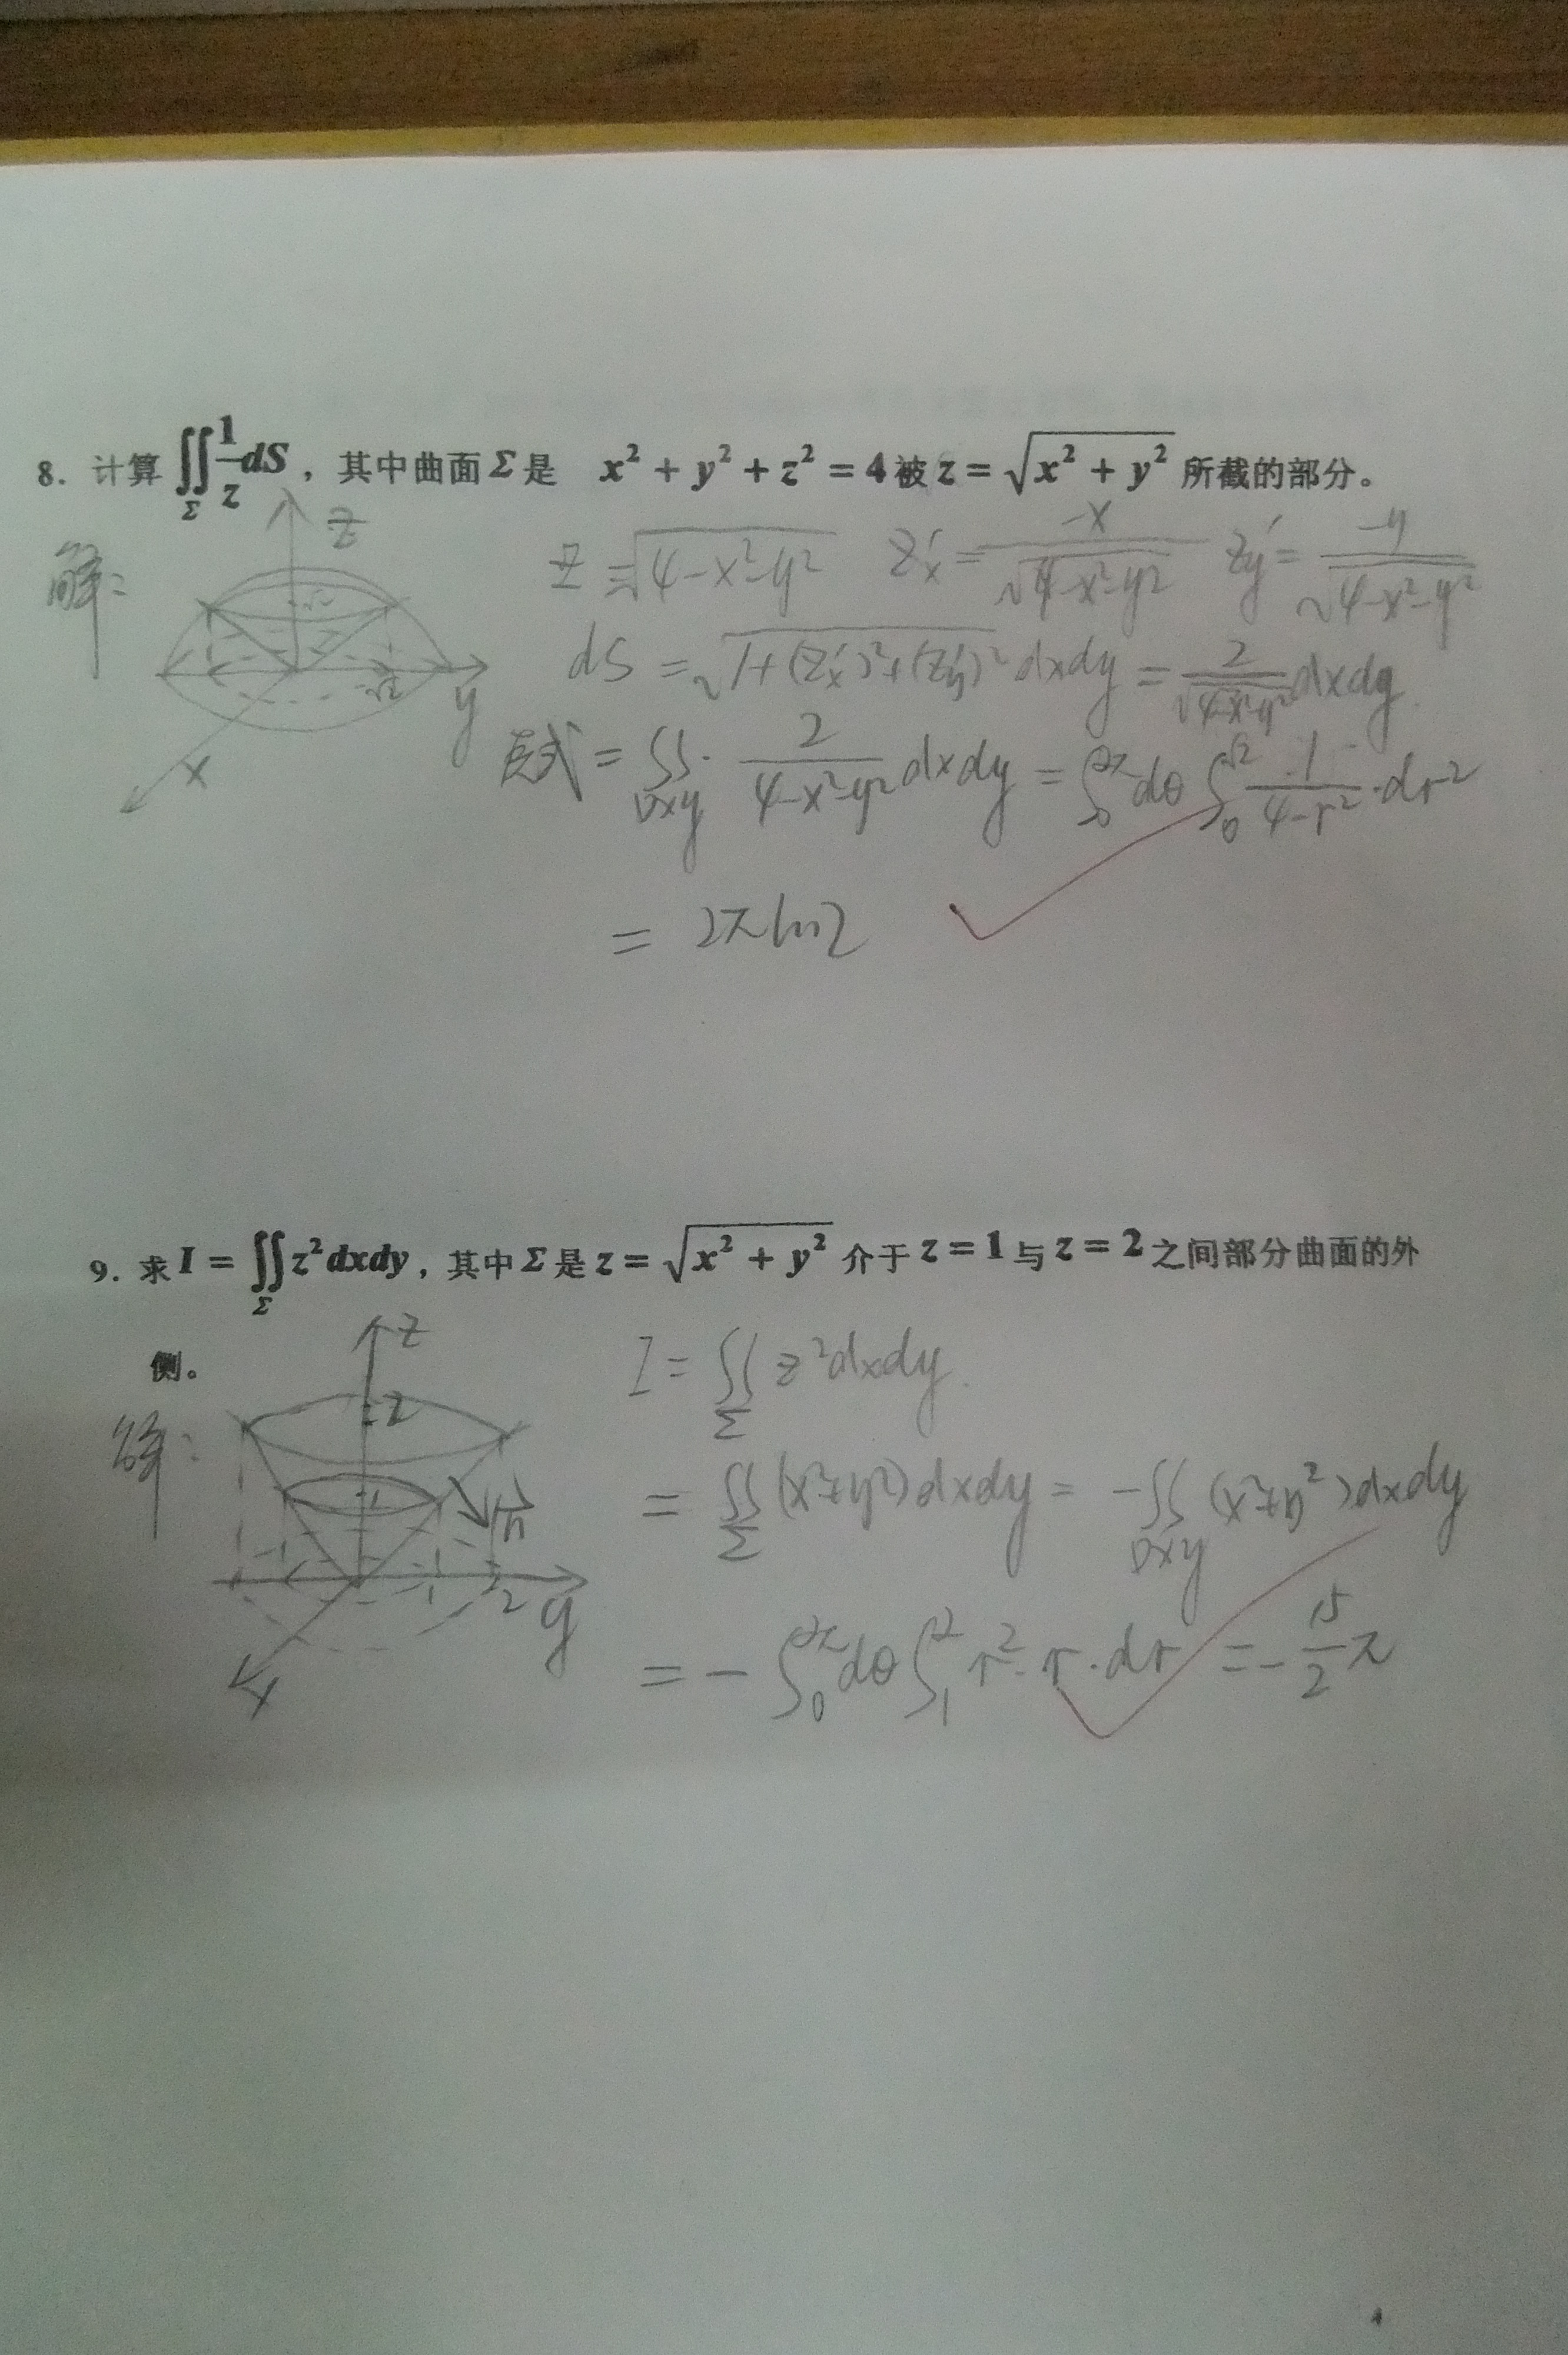 8. 计算 ∬_Σ 1/z dS，其中曲面 Σ 是 x² + y² + z² = 4 被 z = √(x² + y²) 所截的部分。
解：
z
√2
√2
y
x
z = √(4-x²-y²) z'x = -x/√(4-x²-y²) z'y = -y/√(4-x²-y²)
dS = √(1+(z'x)²+(z'y)²) dxdy = 2/√(4-x²-y²) dxdy.
原式 = ∬_Dxy 2/(4-x²-y²) dxdy = ∫_0^2π dθ ∫_0^√2 1/(4-r²)·dr²
= 2πln2
9. 求 I = ∬_Σ z²dxdy，其中 Σ 是 z = √(x² + y²) 介于 z = 1 与 z = 2 之间部分曲面的外
侧。
解：
z
2
1
n
-1
1
2
y
x
I = ∬_Σ z²dxdy.
= ∬_Σ (x²+y²)dxdy = -∬_Dxy (x²+y²)dxdy
= - ∫_0^2π dθ ∫_1^2 r²·r·dr = -15/2 π
4